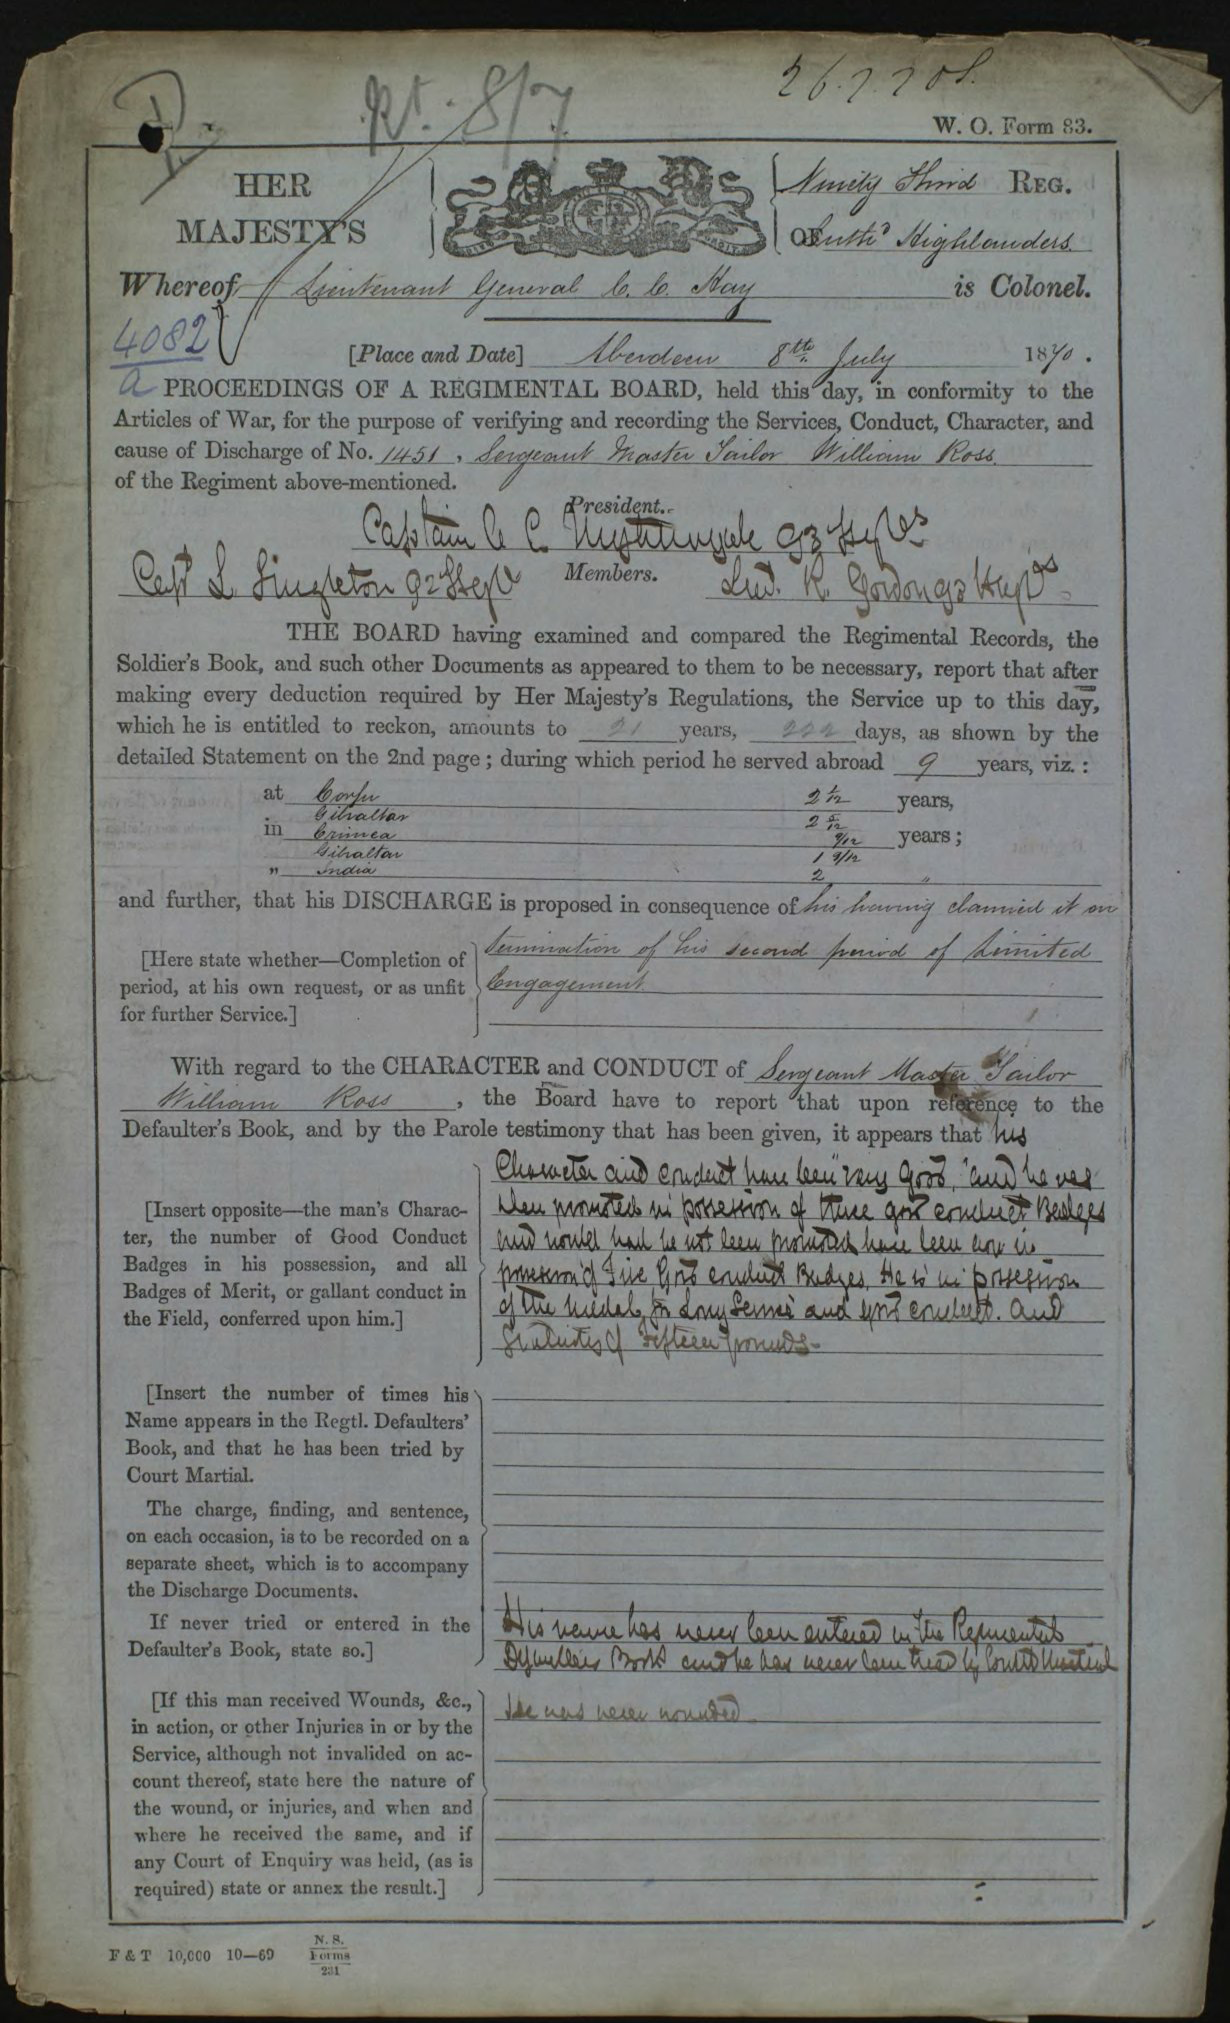 Rt. 8/7
W. O. Form 83.
HER MAJESTY'S
Ninety Third REG.
OF Suthd Highlanders.
Whereof Lieutenant General C. C. Hay is Colonel.
4082
a
[Place and Date] Aberdeen 8th July 1870.
PROCEEDINGS OF A REGIMENTAL BOARD, held this day, in conformity to the
Articles of War, for the purpose of verifying and recording the Services, Conduct, Character, and
cause of Discharge of No. 1451, Sergeant Master Tailor William Ross
of the Regiment above-mentioned.
President.
Captain C C Nightingale 93 Highrs
Members.
Capt L. Singleton 92 Highrs
Lieut. R. Gordon 93 Highrs
THE BOARD having examined and compared the Regimental Records, the
Soldier's Book, and such other Documents as appeared to them to be necessary, report that after
making every deduction required by Her Majesty's Regulations, the Service up to this day,
which he is entitled to reckon, amounts to 21 years, 222 days, as shown by the
detailed Statement on the 2nd page; during which period he served abroad 9 years, viz.:
at Corfu 2 1/12 years,
Gibraltar 2 5/12
in Crimea 9/12 years;
Gibraltar 1 9/12
" India 2 "
and further, that his DISCHARGE is proposed in consequence of his having claimed it on
termination of his second period of Limited
Engagement
[Here state whether—Completion of
period, at his own request, or as unfit
for further Service.]
With regard to the CHARACTER and CONDUCT of Sergeant Master Tailor
William Ross, the Board have to report that upon reference to the
Defaulter's Book, and by the Parole testimony that has been given, it appears that his
Character and conduct have been "very good," and he was
when promoted in possession of three good conduct Badges
and would had he not been promoted have been now in
possession of Five Good conduct Badges. He is in possession
of the medal for Long Service and good conduct. and
Gratuity of Fifteen pounds-
[Insert opposite—the man's Charac-
ter, the number of Good Conduct
Badges in his possession, and all
Badges of Merit, or gallant conduct in
the Field, conferred upon him.]
[Insert the number of times his
Name appears in the Regtl. Defaulters'
Book, and that he has been tried by
Court Martial.
The charge, finding, and sentence,
on each occasion, is to be recorded on a
separate sheet, which is to accompany
the Discharge Documents.
If never tried or entered in the
Defaulter's Book, state so.]
His name has never been entered in the Regimental
Defaulters Book and he has never been tried by Court Martial
[If this man received Wounds, &c.,
in action, or other Injuries in or by the
Service, although not invalided on ac-
count thereof, state here the nature of
the wound, or injuries, and when and
where he received the same, and if
any Court of Enquiry was held, (as is
required) state or annex the result.]
He was never wounded
F & T 10,000 10—69
N. S.
Forms
231